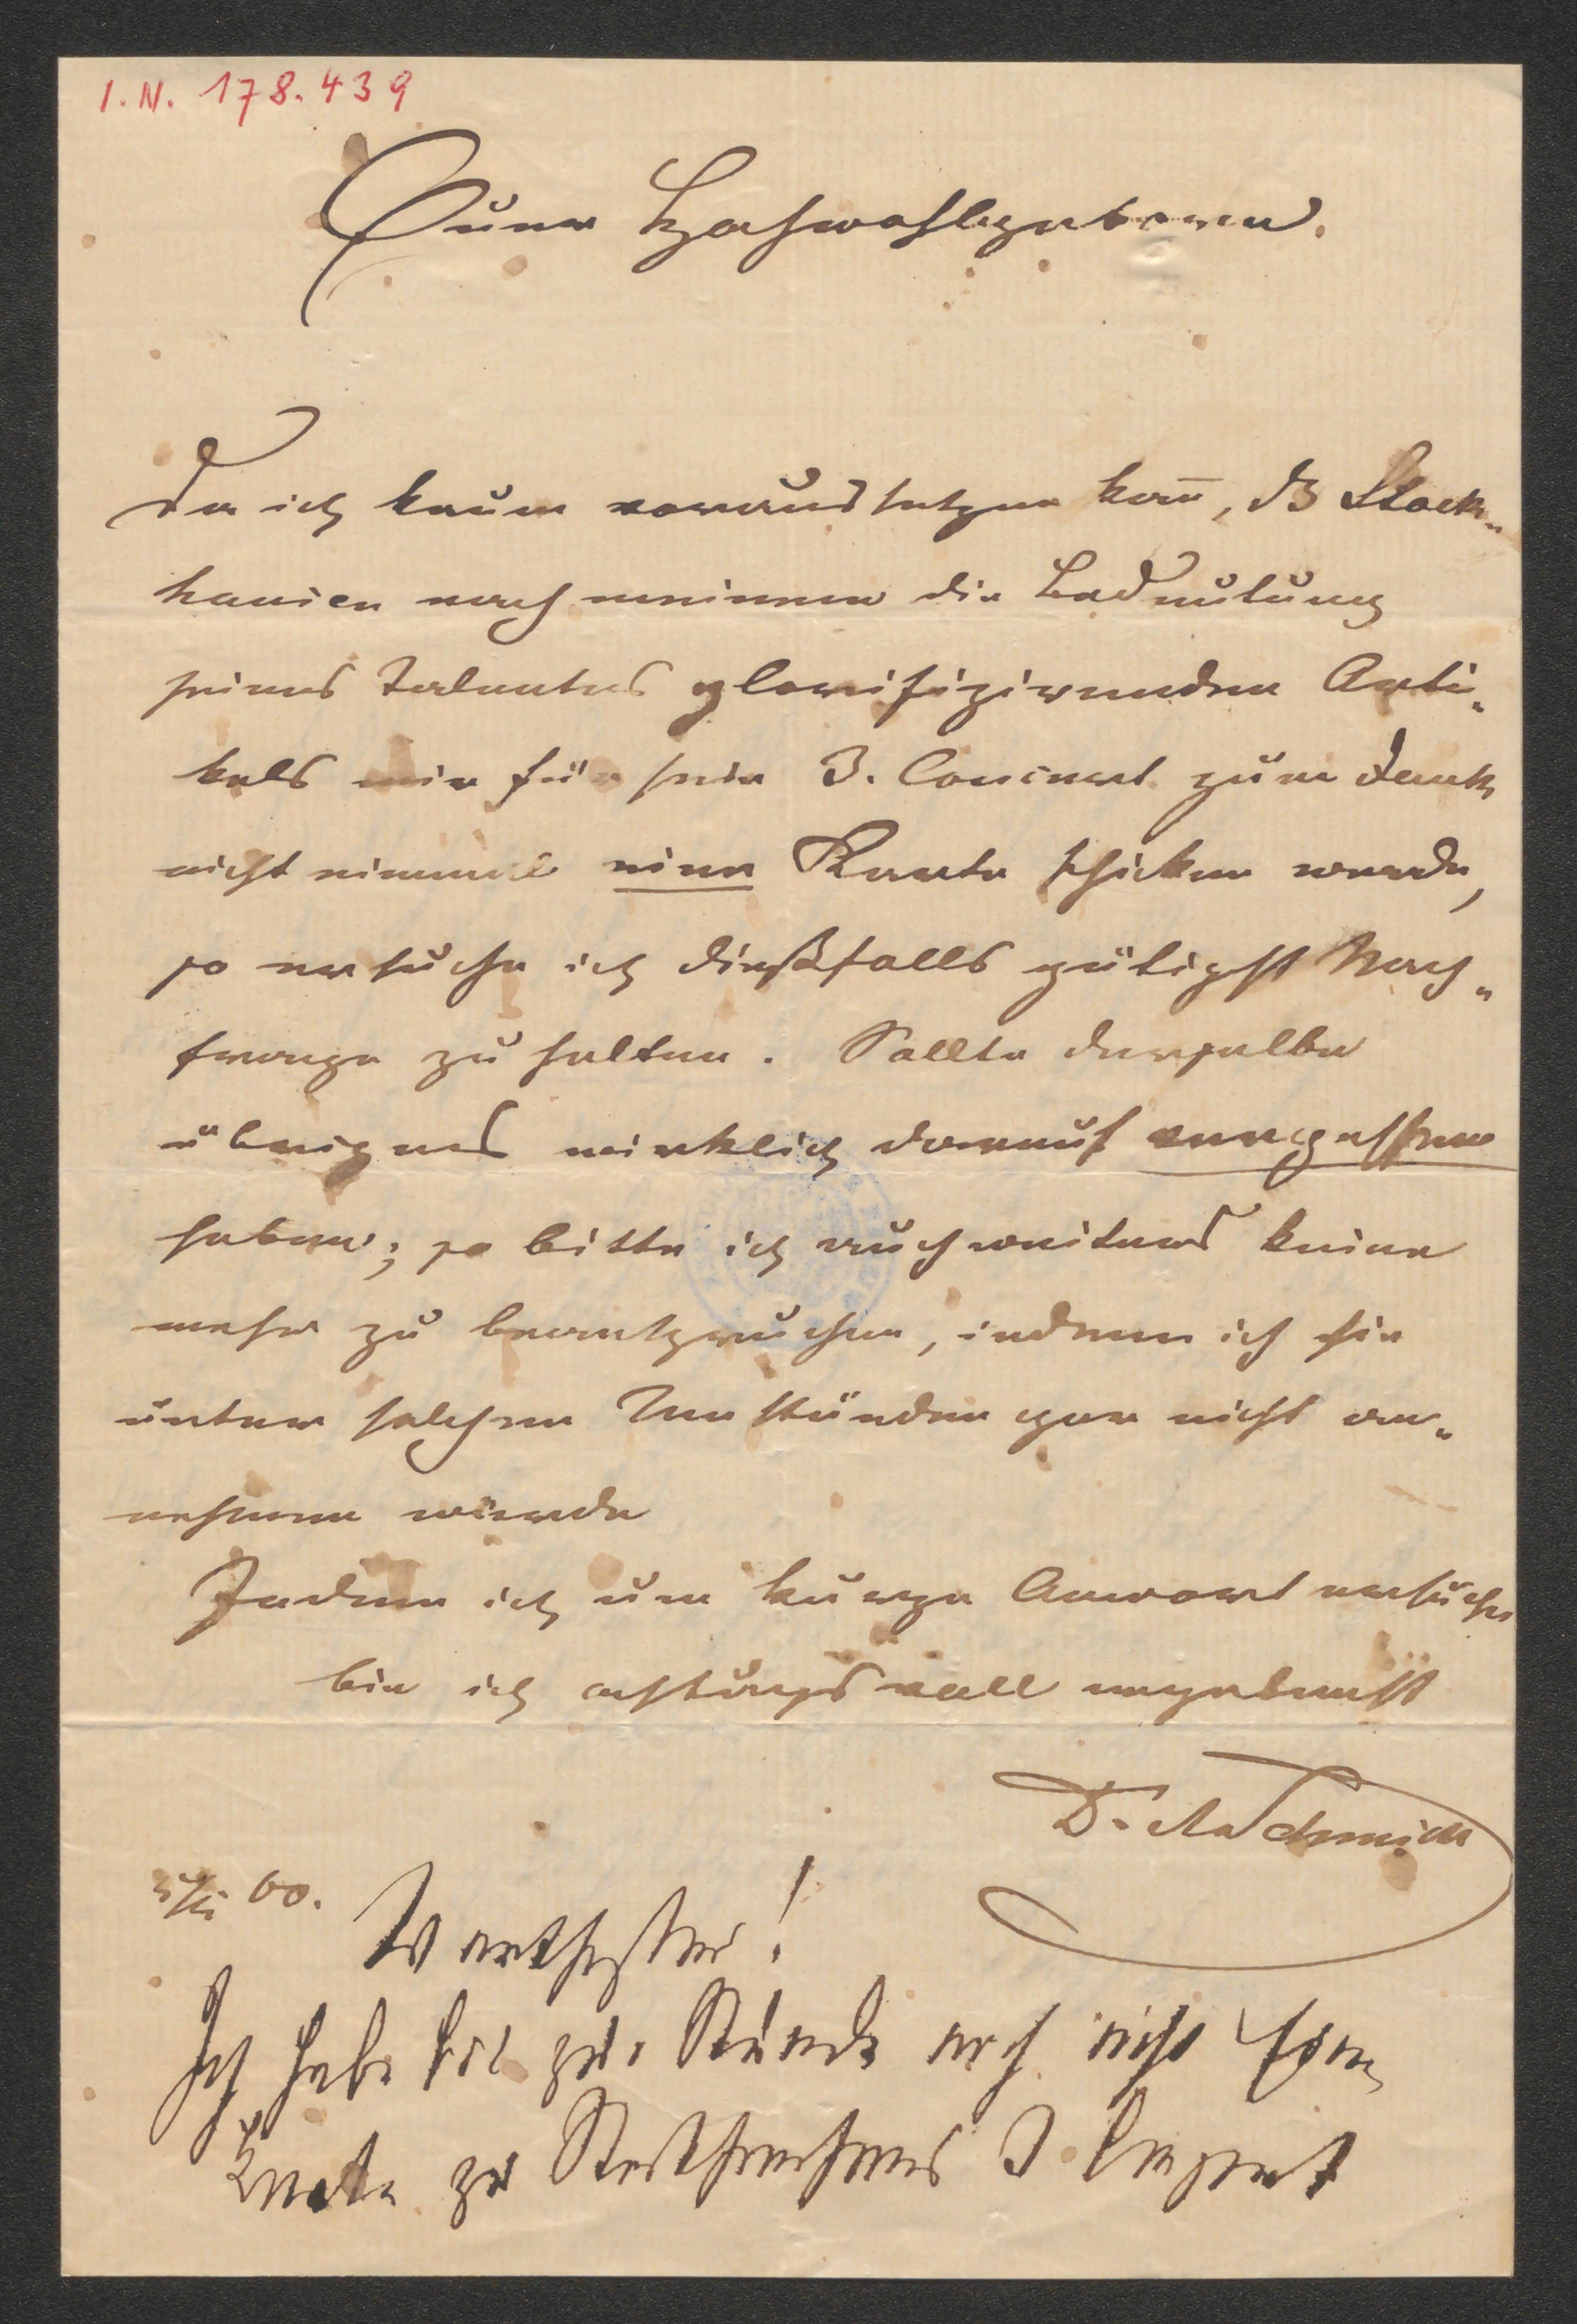 I.N. 178.439
Euer Hochwohlgeboren.
Da ich kaum voraussetzen kañ, dß Stock„
hausen nach meinem die Bedeutung
seines Talentes glorifizirenden Arti„
kels mir für sein 3. Concert zum Dank
nicht einmal eine Karte schicken werde,
so ersuche ich dießfalls gütigst Nach„
frage zu halten. Sollte derselbe
übrigens wirklich darauf vergessen
haben; so bitte ich auch weiters keine
mehr zu beanspruchen, indem ich sie
unter solchen Umständen gar nicht an„
nehmen würde
Indem ich um kurze Anwort ersuche
bin ich achtungsvoll ergebenst
D. Ad Schmidt
60.
Werthester!
Ich habe bis zur Stunde noch nicht
Karte zu Stockhausens 3. Concert